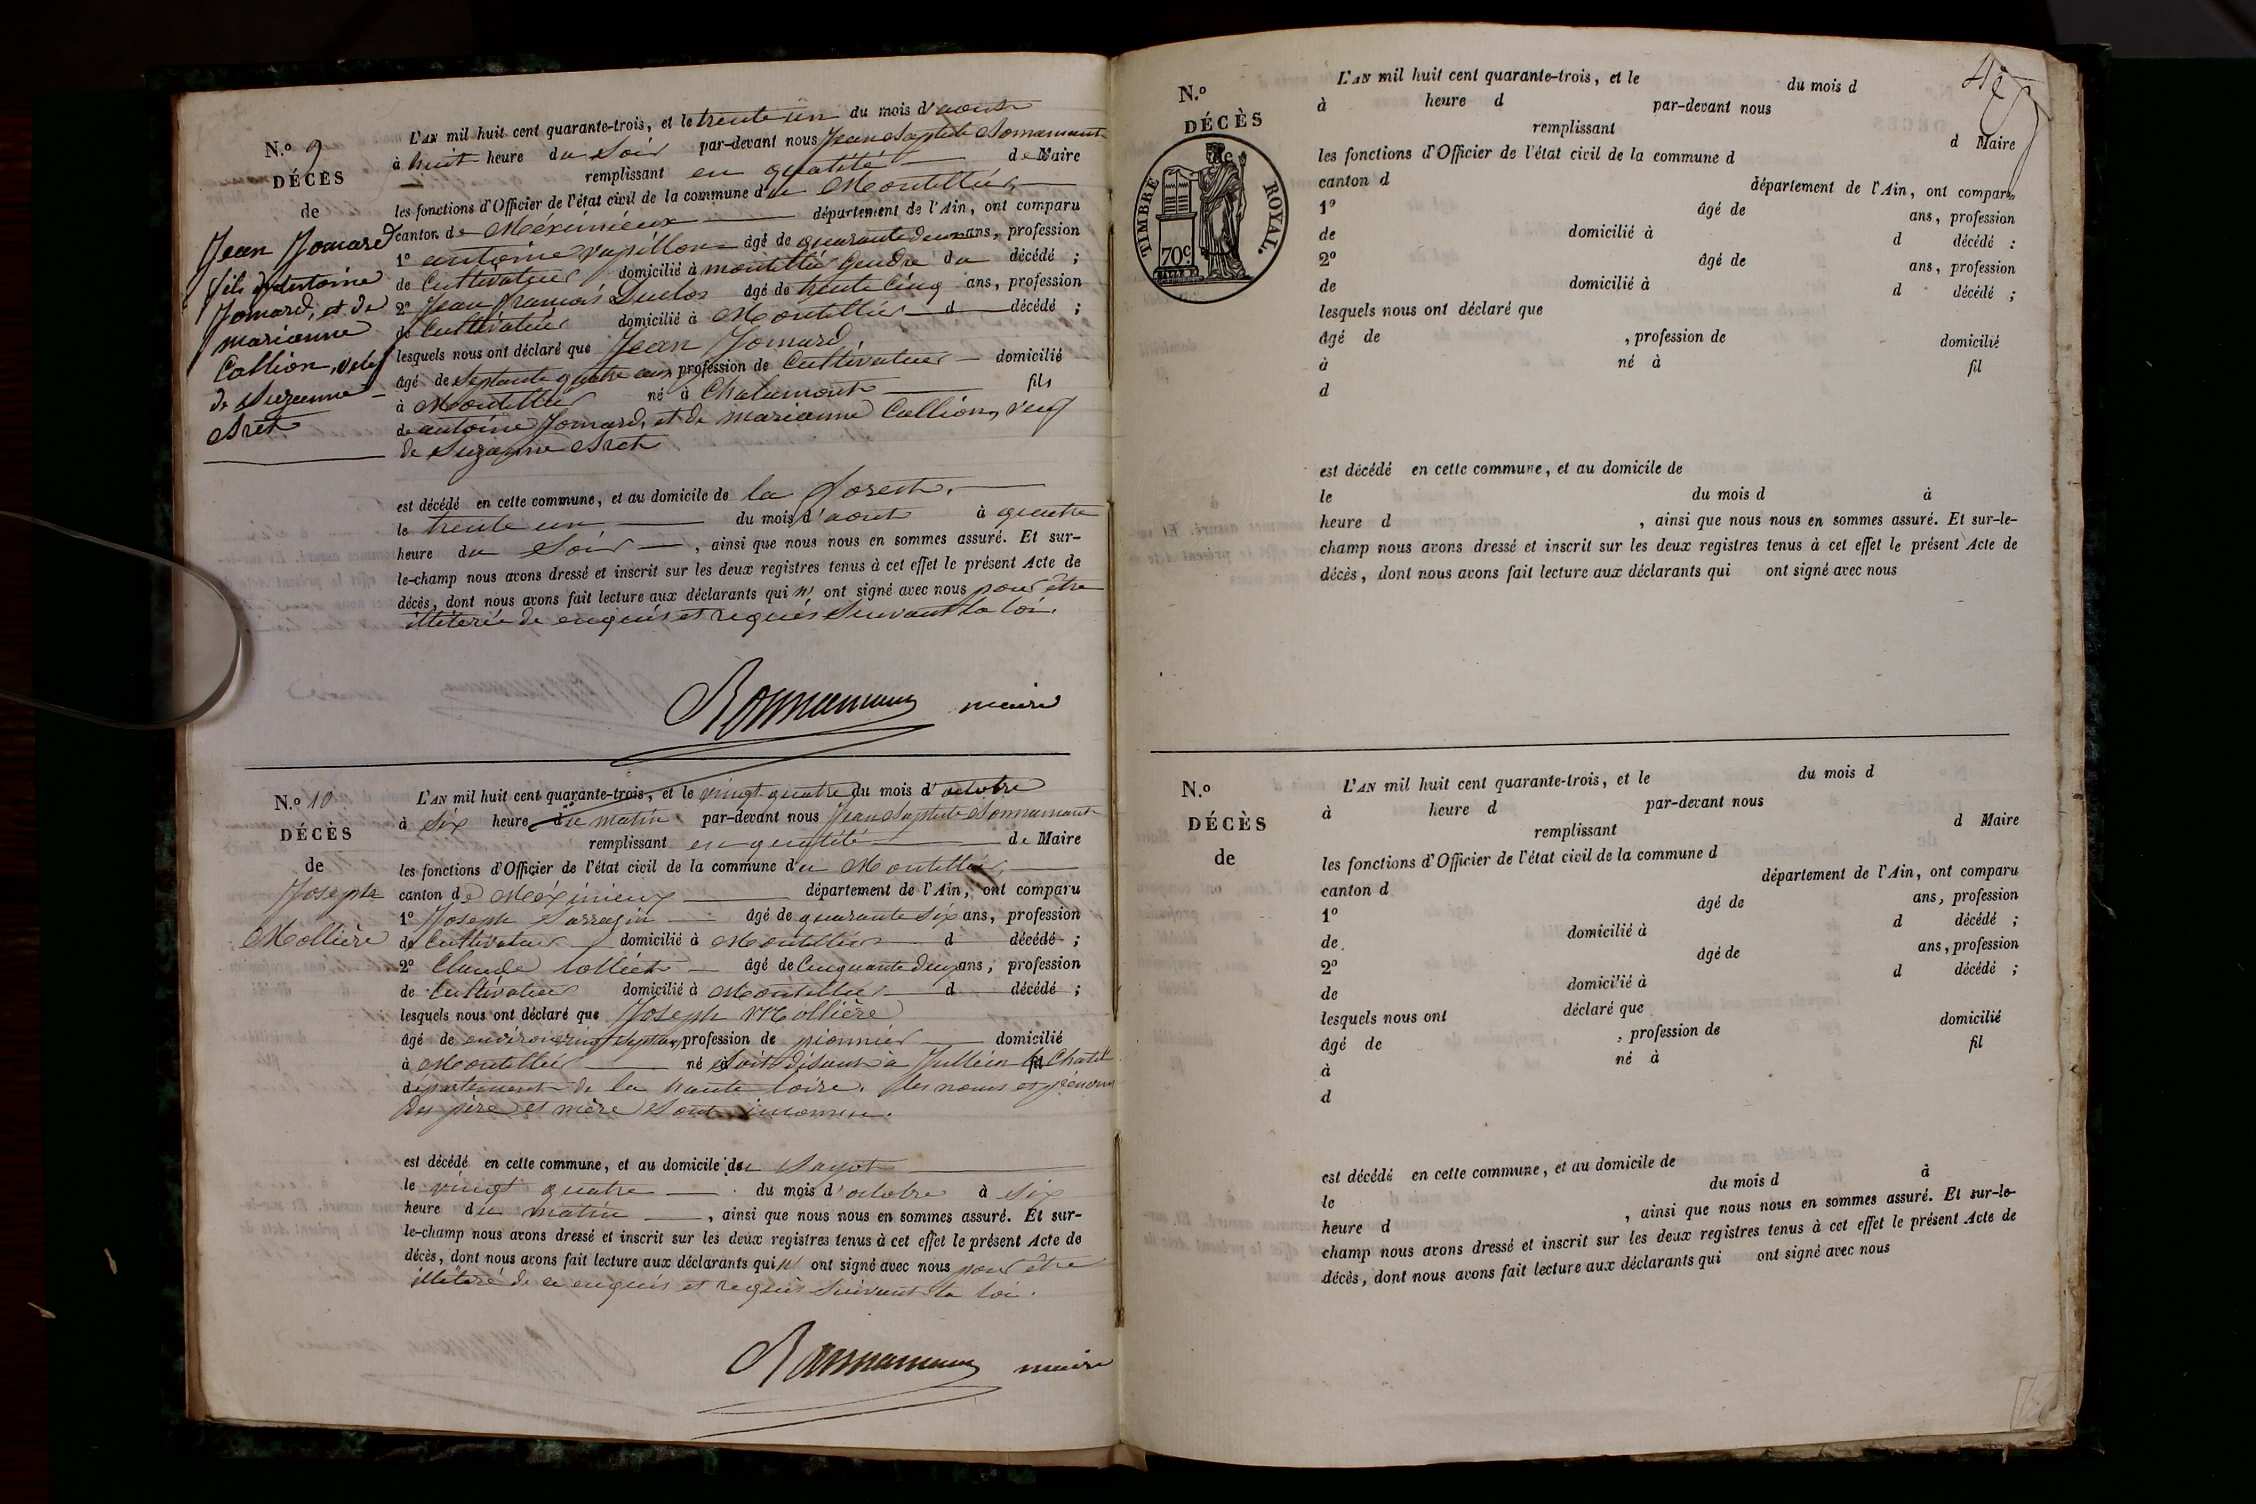 N.o 9
DÉCÈS
de
Jean Jomard
fils d'Antoine
Jomard, et de
marianne
Callion, veuf
de Suzanne
Bret
L'AN mil huit cent quarante-trois, et le trente un du mois d'aout
à huit heure du soir par-devant nous Jean Baptiste Bonnamant
remplissant en qualité de Maire
les fonctions d'Officier de l'état civil de la commune du Montellier
canton de Meximieux département de l'Ain, ont comparu
1o antoine vapillon âgé de quarante deux ans, profession
de Cultivateur domicilié à montellier Gendre du décédé ;
2o Jean françois Duclos âgé de trente Cinq ans, profession
de Cultivateur domicilié à Montellier d décédé ;
lesquels nous ont déclaré que Jean Jomard
âgé de Septante quatre ans profession de Cultivateur domicilié
à Montellier né à Chalamont fils
de antoine Jomard, et de marianne Callion, veuf
de Suzanne Bret
est décédé en cette commune, et au domicile de la forest.
le trente un du mois d'aout à quatre
heure du Soir , ainsi que nous nous en sommes assuré. Et sur-
le-champ nous avons dressé et inscrit sur les deux registres tenus à cet effet le présent Acte de
décès, dont nous avons fait lecture aux déclarants qui n' ont signé avec nous pour être
illiteré de enquis et requis Suivant la loi.
Bonnamant maire
N.o 10
DÉCÈS
de
Joseph
Mollière
L'AN mil huit cent quarante-trois, et le vingt quatre du mois d'octobre
à Six heure du matin par-devant nous Jean Baptiste Bonnamant
remplissant en qualité de Maire
les fonctions d'Officier de l'état civil de la commune du Montellier
canton de Méximieux département de l'Ain, ont comparu
1o Joseph Sarrazin âgé de quarante Six ans, profession
de Cultivateur domicilié à Montellier d décédé ;
2o Claude Colliet âgé de Cinquante deux ans, profession
de Cultivateur domicilié à Montellier d décédé ;
lesquels nous ont déclaré que Joseph Mollière
âgé de environ profession de pionnier domicilié
à Montellier né Soit disant à Jullien Chatel
département de la haute loire. les noms et prénoms
des père et mère Sont inconnu.
est décédé en cette commune, et au domicile du
le vingt quatre du mois d'octobre à Six
heure du matin , ainsi que nous nous en sommes assuré. Et sur-
le-champ nous avons dressé et inscrit sur les deux registres tenus à cet effet le présent Acte de
décès, dont nous avons fait lecture aux déclarants qui n' ont signé avec nous pour être
illiteré de ce enquis et requis Suivant la loi.
Bonnamant maire
N.o
DÉCÈS
TIMBRE ROYAL.
70c.
L'AN mil huit cent quarante-trois, et le du mois d
à heure d par-devant nous
remplissant d Maire
les fonctions d'Officier de l'état civil de la commune d
canton d département de l'Ain, ont comparu
1o âgé de ans, profession
de domicilié à d décédé :
2o âgé de ans, profession
de domicilié à d décédé ;
lesquels nous ont déclaré que
âgé de , profession de domicilié
à né à fil
d
est décédé en cette commune, et au domicile de
le du mois d à
heure d , ainsi que nous nous en sommes assuré. Et sur-le-
champ nous avons dressé et inscrit sur les deux registres tenus à cet effet le présent Acte de
décès, dont nous avons fait lecture aux déclarants qui ont signé avec nous
N.o
DÉCÈS
de
L'AN mil huit cent quarante-trois, et le du mois d
à heure d par-devant nous
remplissant d Maire
les fonctions d'Officier de l'état civil de la commune d
canton d département de l'Ain, ont comparu
1o âgé de ans, profession
de domicilié à d décédé ;
2o âgé de ans, profession
de domicilié à d décédé ;
lesquels nous ont déclaré que
âgé de , profession de domicilié
à né à fil
d
est décédé en cette commune, et au domicile de
le du mois d à
heure d , ainsi que nous nous en sommes assuré. Et sur-le-
champ nous avons dressé et inscrit sur les deux registres tenus à cet effet le présent Acte de
décès, dont nous avons fait lecture aux déclarants qui ont signé avec nous